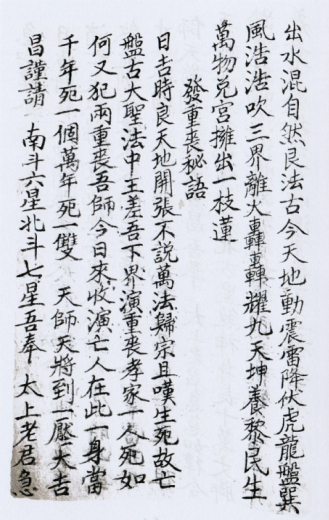 出水混自然艮法古今天地動震雷降伏虎龍盤巽
風浩浩吹三界離火轟轟耀九天坤養黎民生
萬物兌宮擁出一枝蓮
發重喪秘語
日吉時良天地開張不說萬法歸宗且嘆生死故亡
盤古大聖法中王差吾下界演重喪孝家一人死如
何又犯兩重喪吾師今日來收演亡人在此一身當
千年死一個萬年死一雙 天師天將到一壓大吉
昌謹請 南斗六星北斗七星吾奉 太上老君急